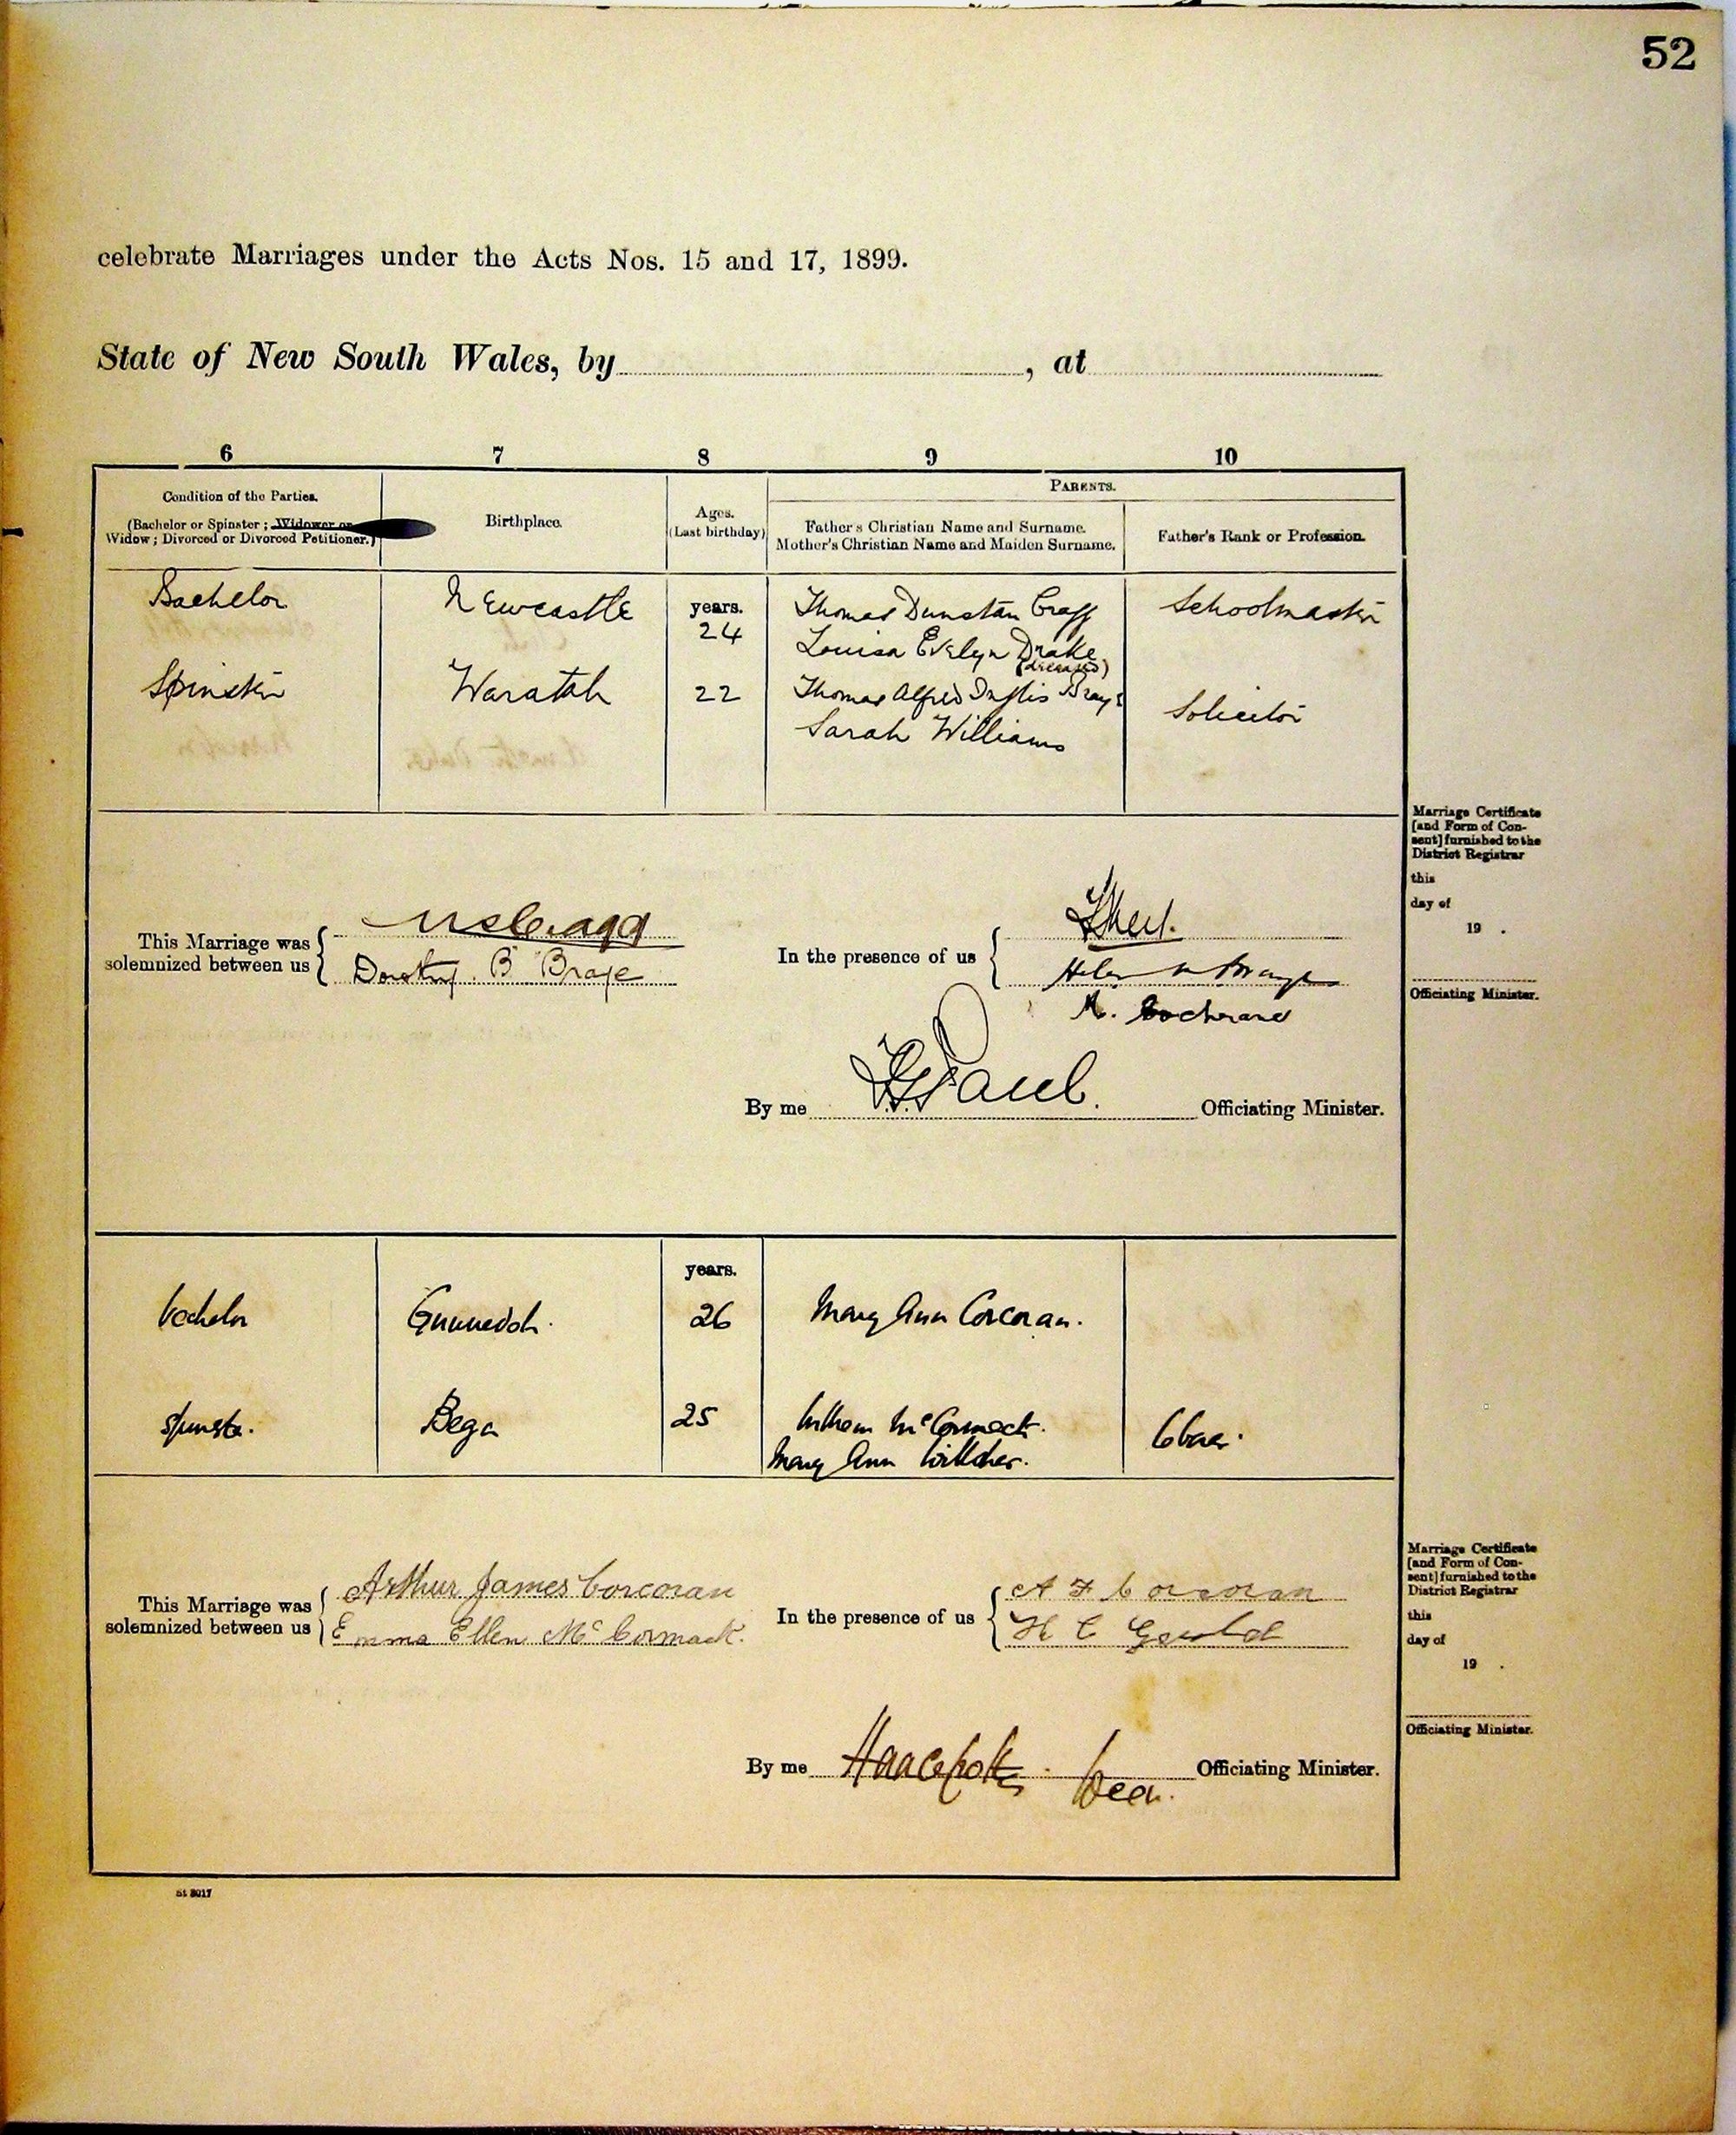 52
celebrate Marriages under the Acts Nos. 15 and 17, 1899.
State of New South Wales, by , at
6 7 8 9 10
Condition of the Parties.
(Bachelor or Spinster; Widower or
Widow; Divorced or Divorced Petitioner.)
Birthplace.
Ages.
(Last birthday)
PARENTS.
Father's Christian Name and Surname.
Mother's Christian Name and Maiden Surname.
Father's Rank or Profession.
Bachelor
Newcastle
years.
24
Thomas Dunstan Cragg
Louisa Evelyn Drake
(deceased)
Schoolmaster
Spinster
Waratah
22
Thomas Alfred Inglis Braye
Sarah Williams
Solicitor
Marriage Certificate
[and Form of Con-
sent] furnished to the
District Registrar
this
day of
19 .
Officiating Minister.
This Marriage was
solemnized between us
Cragg
Dorothy B Braye
In the presence of us
Helen Braye
Cochrane
By me Paul. Officiating Minister.
bachelor
Gunnedah.
years.
26
Mary Ann Corcoran.
spinster.
Bega
25
William McCormack.
Mary Ann
Marriage Certificate
[and Form of Con-
sent] furnished to the
District Registrar
this
day of
19 .
Officiating Minister.
This Marriage was
solemnized between us
Arthur James Corcoran
Emma Ellen McCormack.
In the presence of us
A F Corcoran
H C
By me Dean. Officiating Minister.
St 8017